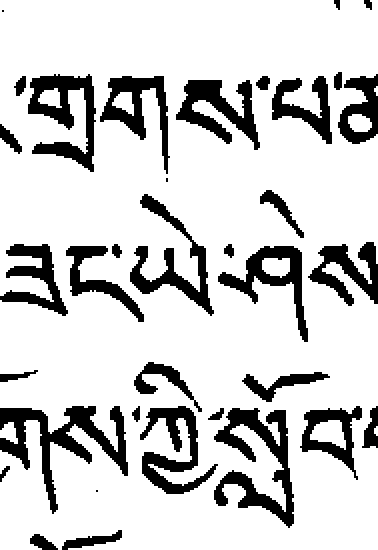 ་གྲགས་པ་
ཟང་ཡེ་ཤེས
གས་ཀྱི་སློབ་